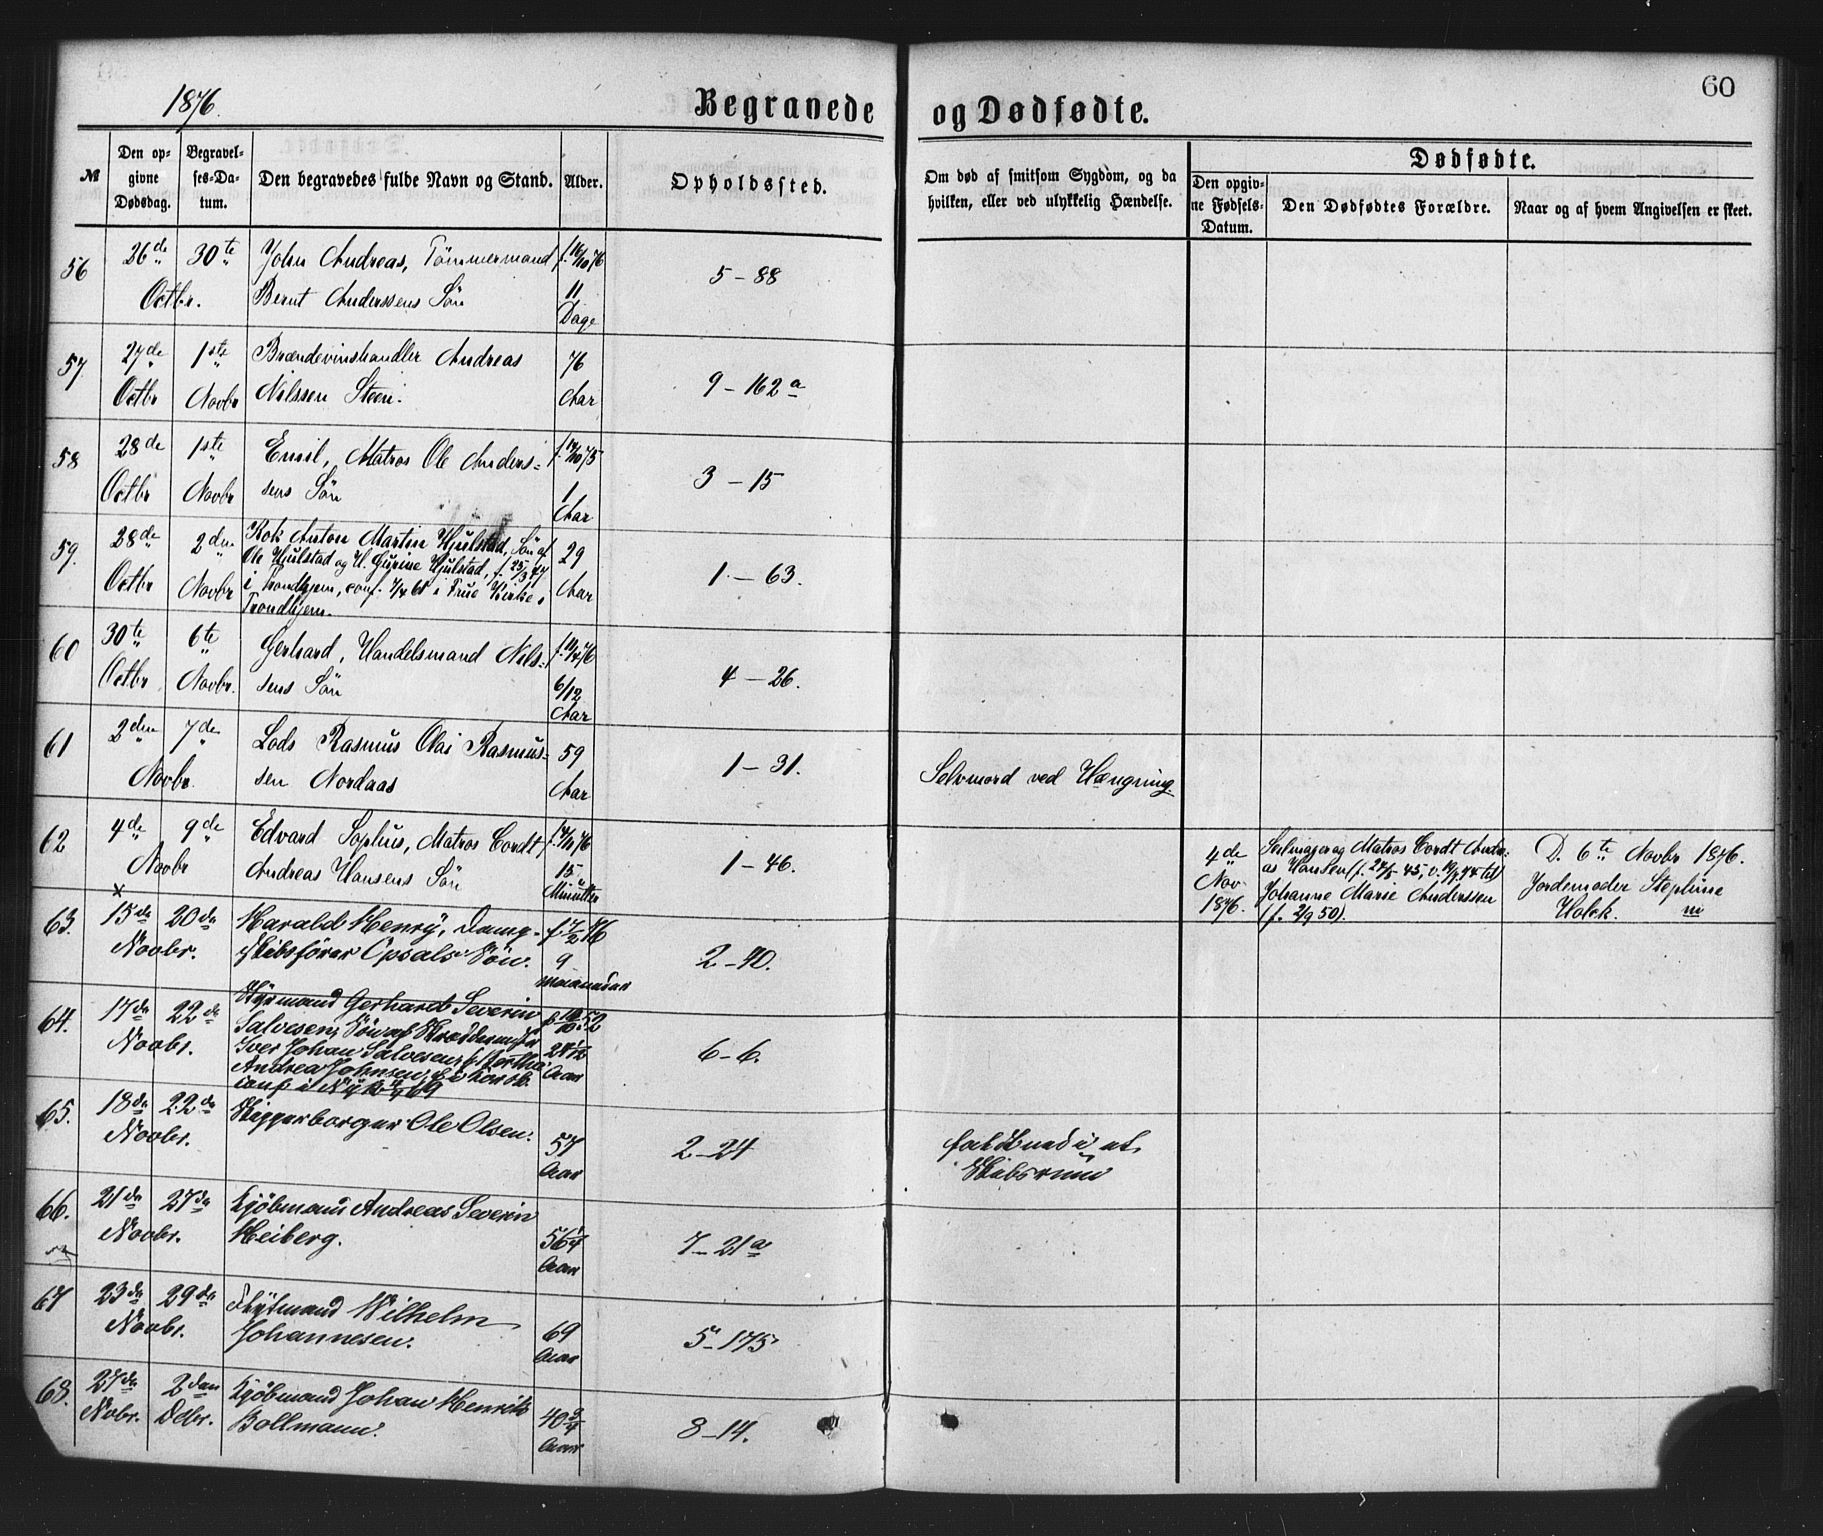 1876.
60
Begravede og Dødfødte.
№
Den op-
givne
Dødsdag.
Begravel-
ses-Da-
tum.
Den begravedes fulde Navn og Stand.
Alder.
Opholdssted.
Om død af smitsom Sygdom, og da
hvilken, eller ved ulykkelig Hændelse.
Dødfødte.
Den opgiv-
ne Fødsels-
Datum.
Den Dødfødtes Forældre.
Naar og af hvem Angivelsen er skeet.
56 26de 30te John Andreas, Tömmermand f. 16/10 76
Octbr. Bernt Anderssens Sön 11 Dage 5 - 88
57 27de 1ste Brændevinshandler Andreas 76
Octbr Novbr Nilssen Steen. Aar 9 - 162a
58 28de 1ste Emil, Matros Ole Anders- f. 14/10 75
Octbr Novbr sens Sön 1 Aar 3 - 15
59. 28de 2den Kok Anton Martin Hjulstad, Sön af 29
Ole Hjulstad og H. Gurine Hjulstad, f. 25/3 47
Octbr Novbr i Trondhjem, conf. i Frue Kirke, Aar 1 - 63.
Trondhjem.
60 30te 6te Gerhard, Handelsmand Nils- f. 11/4 76
Octbr Novbr. sens Sön 6/12 Aar 4 - 26.
61 2den 7de Lods Rasmus Olai Rasmus- 59
Novbr. sen Nordaas Aar 1 - 31. Selvmord ved Hængning.
62 4de 9de Edvard Sophus, Matros Cordt f. 4/11 76
Novbr Andreas Hansens Sön 15 Minutter 1 - 46.
4de
Nov
1876.
Seilmager og Matros Cordt Andre-
as Hansen
Johanne Marie Anderssen
(f. 2/9 50).
D. 6te Novbr 1876.
Jordemoder Stephine
Holck.
×
63. 15de 20de Harald Henry, Damp- f. 17/2 76
Novbr. skibsförer Opsals Sön. 9 Maaneder 2 - 40.
64. 17de 22de Styrmand Gerhard Severin
Salvesen, Sön af Skræddermester
Novbr. Iver Johan Salvesen, 24 1/12 6 - 6.
Andrea Johnsen, Aar
conf. i 69
65. 18de 22de Skipperborger Ole Olsen. 57
Novbr. Aar 2 - 24 faldt ned i et
Skibsrum
66. 21de 27de Kjöbmand Andreas Severin
Novbr. Heiberg. 56 1/4 Aar 7 - 21a
67 23de 29de Flytmand Wilhelm
Novbr. Johannesen. 69 Aar 5 - 175
68. 27de 2den Kjöbmand Johan Henrik
Novbr. Decbr. Bollmann. 40 3/4 Aar 8 - 14.